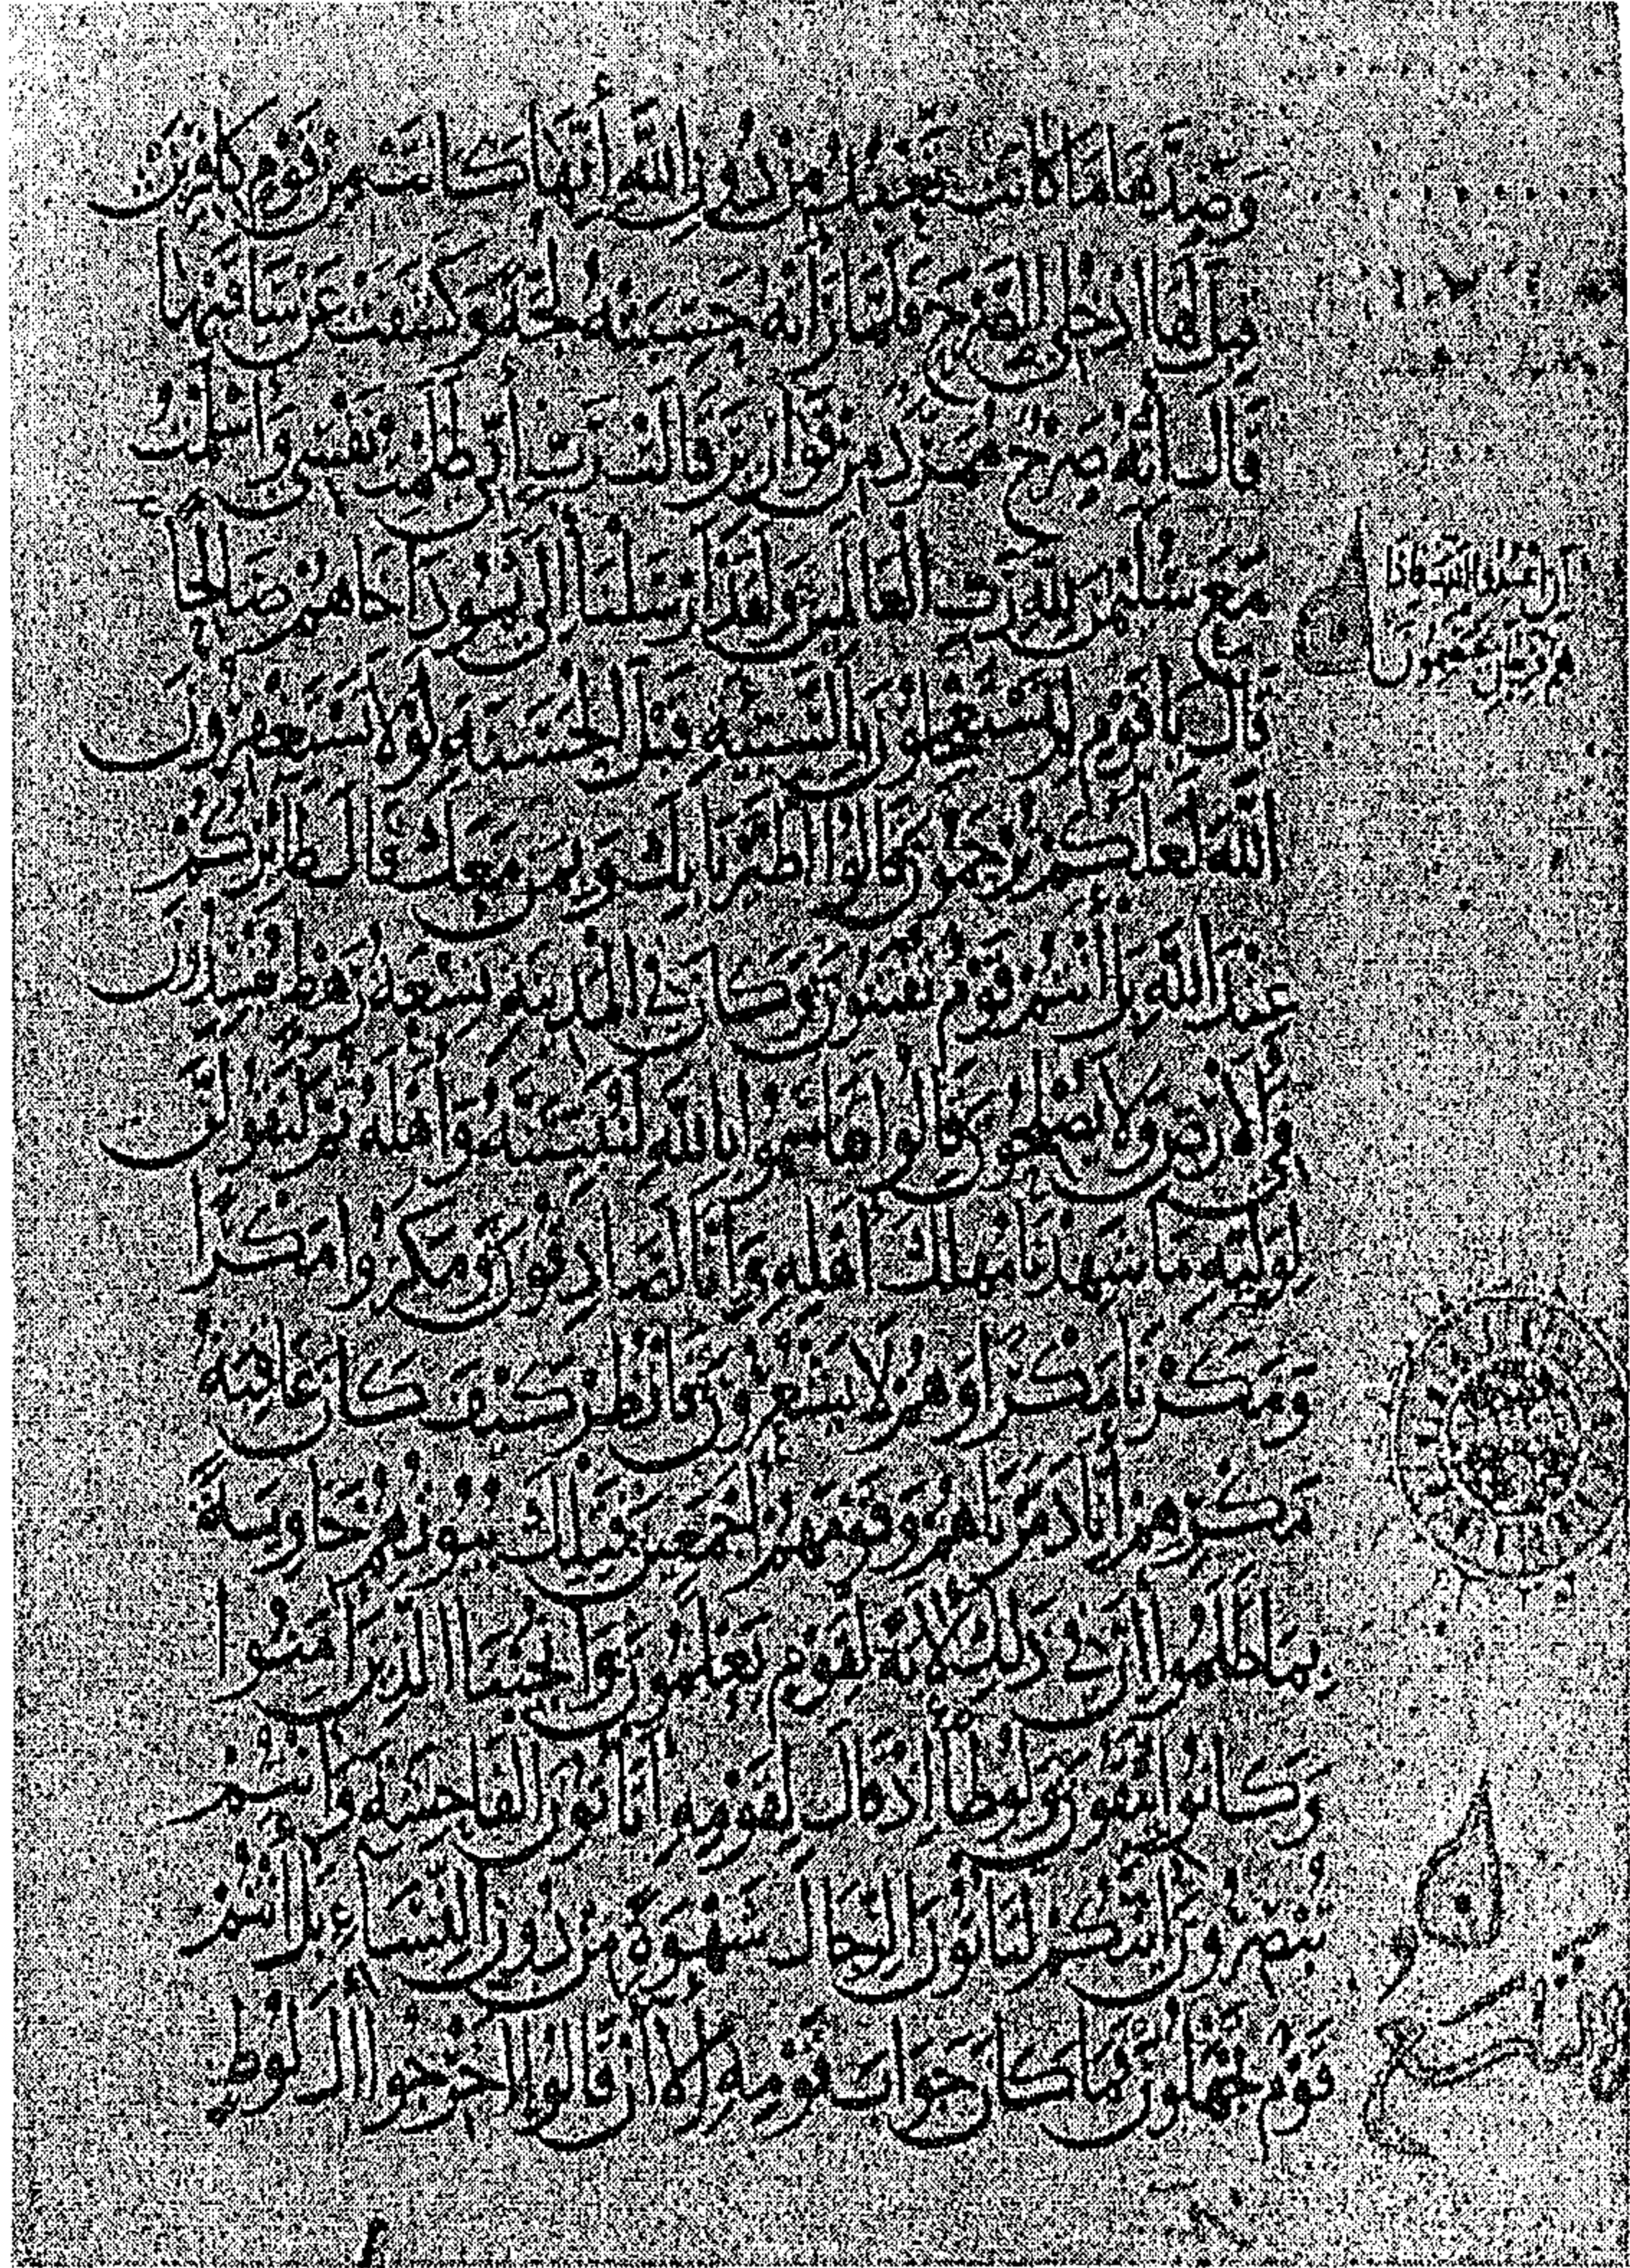 وَصَدَّهَا مَا كَانَت تَعْبُدُ مِنْ دُونِ اللَّهِ إِنَّهَا كَانَتْ مِنْ قَوْمٍ كَافِرِينَ
قِيلَ لَهَا ادْخُلِي الصَّرْحَ فَلَمَّا رَأَتْهُ حَسِبَتْهُ لُجَّةً وَكَشَفَتْ عَنْ سَاقَيْهَا
قَالَ إِنَّهُ صَرْحٌ مُمَرَّدٌ مِنْ قَوَارِيرَ قَالَتْ رَبِّ إِنِّي ظَلَمْتُ نَفْسِي وَأَسْلَمْتُ
مَعَ سُلَيْمَنَ لِلَّهِ رَبِّ الْعَالَمِينَ وَلَقَدْ أَرْسَلْنَا إِلَى ثَمُودَ أَخَاهُمْ صَالِحًا
أَنِ اعْبُدُوا اللَّهَ فَإِذَا
هُمْ فَرِيقَانِ يَخْتَصِمُونَ
قَالَ يَا قَوْمِ لِمَ تَسْتَعْجِلُونَ بِالسَّيِّئَةِ قَبْلَ الْحَسَنَةِ لَوْلَا تَسْتَغْفِرُونَ
اللَّهَ لَعَلَّكُمْ تُرْحَمُونَ قَالُوا اطَّيَّرْنَا بِكَ وَبِمَنْ مَعَكَ قَالَ طَائِرُكُمْ
عِنْدَ اللَّهِ بَلْ أَنْتُمْ قَوْمٌ تُفْتَنُونَ وَكَانَ فِي الْمَدِينَةِ تِسْعَةُ رَهْطٍ يُفْسِدُونَ
فِي الْأَرْضِ وَلَا يُصْلِحُونَ قَالُوا تَقَاسَمُوا بِاللَّهِ لَنُبَيِّتَنَّهُ وَأَهْلَهُ ثُمَّ لَنَقُولَنَّ
لِوَلِيِّهِ مَا شَهِدْنَا مَهْلِكَ أَهْلِهِ وَإِنَّا لَصَادِقُونَ وَمَكَرُوا مَكْرًا
وَمَكَرْنَا مَكْرًا وَهُمْ لَا يَشْعُرُونَ فَانْظُرْ كَيْفَ كَانَ عَاقِبَةُ
مَكْرِهِمْ أَنَّا دَمَّرْنَاهُمْ وَقَوْمَهُمْ أَجْمَعِينَ فَتِلْكَ بُيُوتُهُمْ خَاوِيَةً
بِمَا ظَلَمُوا إِنَّ فِي ذَلِكَ لَآيَةً لِقَوْمٍ يَعْلَمُونَ وَأَنْجَيْنَا الَّذِينَ آمَنُوا
وَكَانُوا يَتَّقُونَ وَلُوطًا إِذْ قَالَ لِقَوْمِهِ أَتَأْتُونَ الْفَاحِشَةَ وَأَنْتُمْ
تُبْصِرُونَ أَئِنَّكُمْ لَتَأْتُونَ الرِّجَالَ شَهْوَةً مِنْ دُونِ النِّسَاءِ بَلْ أَنْتُمْ
قَوْمٌ تَجْهَلُونَ فَمَا كَانَ جَوَابَ قَوْمِهِ إِلَّا أَنْ قَالُوا أَخْرِجُوا آلَ لُوطٍ